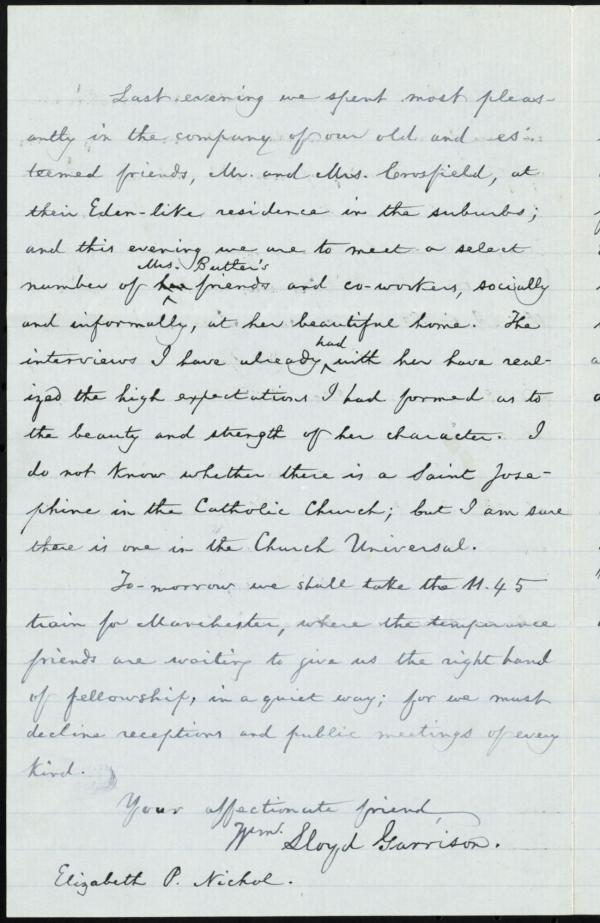 Last evening we spent most pleas-
antly in the company of our old and es-
teemed friends, Mr. and Mrs. Crosfield, at
their Eden-like residence in the suburbs;
and this evening we are to meet a select
Mrs. Butler's
number of her friends and co-workers, socially
and informally, at her beautiful home. The
had
interviews I have already with her have real-
ized the high expectations I had formed as to
the beauty and strength of her character. I
do not know whether there is a Saint Jose-
phine in the Catholic Church; but I am sure
there is one in the Church Universal.
To-morrow we shall take the 11.45
train for Manchester, where the temperance
friends are waiting to give us the right hand
of fellowship, in a quiet way; for we must
decline receptions and public meetings of every
kind.
Your affectionate friend,
Wm. Lloyd Garrison.
Elizabeth P. Nichol.